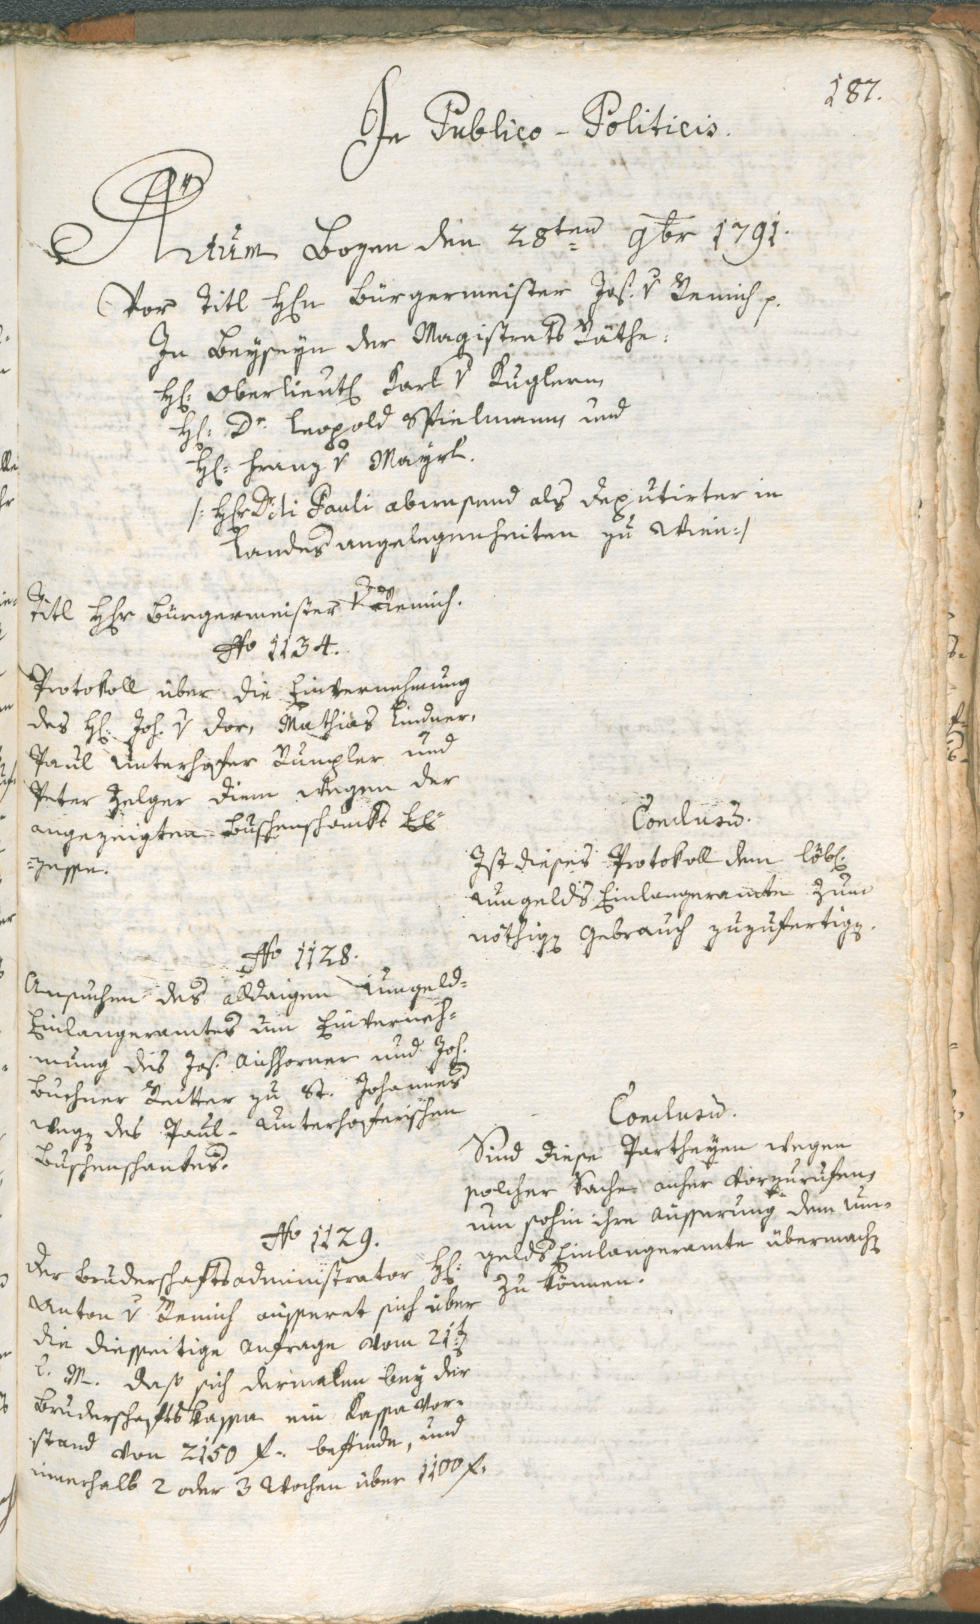 187.
In Publico-Politicis.
Actum Bozen den 28ten 9br 1791.
Vor Titl Hℓn Bürgermeister Jos. v Remich p.
In Beyseyn der Magistrats Räthe:
Hℓ: Oberlieutℓ Karl v Kuglern,
Hℓ: Dr. Leopold Spielmann, und
Hℓ: Franz v Mayrl.
/: Hℓr Dr di Pauli abwesend als Deputirter in
Landesangelegenheiten zu Wien :/
Titl Hℓr Bürgermeister v Remich.
No 1134.
Protokoll über die Einvernehmung
des Hℓ: Joh. v Dor, Mathias Lindner,
Paul Unterhofer Rumpler und
Peter Zelger Diem wegen der
angezeigten Buschenschanks Ex-
zesse.
Conclusũ.
Ist dieses Protokoll dem löbℓ.
Umgelds Einlangeramte zum
nöthigen Gebrauch zuzufertigen.
No 1128.
Ansuchen des alldaigen Umgeld-
Einlangeramtes um Einverneh-
mung des Jos. Aichhorner und Joh.
Buchner Reitter zu St. Johannes
wegen des Paul-Unterhoferischen
Buschenschankes.
Conclusũ.
Sind diese Partheyen wegen
solcher Sache anher vorzurufen,
um sohin ihre Äusserung dem Um-
gelds Einlangeramte übermachen
zu können.
No 1129.
Der Bruderschaftsadministrator Hℓ:
Anton v Remich äusseret sich über
die diesseitige Anfrage vom 21t
l. M. daß sich dermalen bey der
Bruderschaftskassa ein Kassavor-
stand von 2150 f. befinde, und
innerhalb 2 oder 3 Wochen über 1100 f.